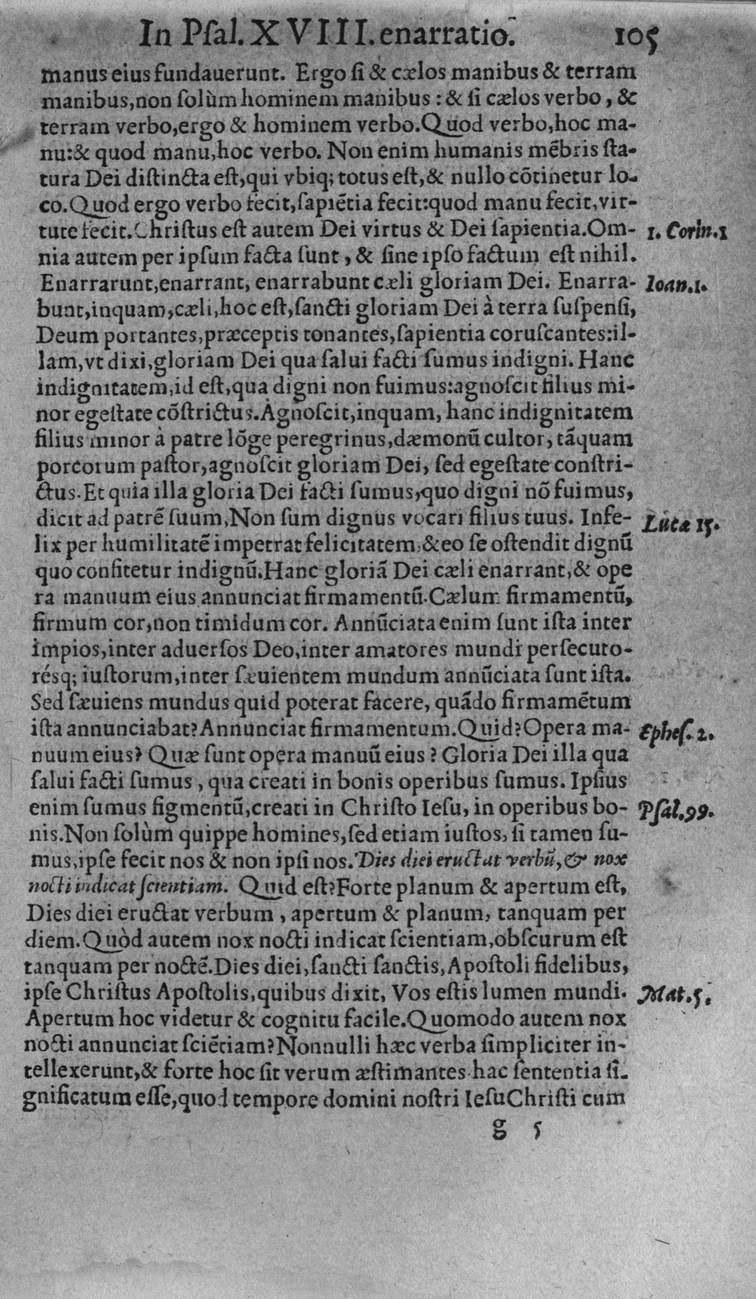 In Pſal. XVIII. enarratio. 105
manus eius fundauerunt. Ergo ſi & cælos manibus & terram
manibus, non ſolùm hominem manibus : & ſi cælos verbo, &
terram verbo, ergo & hominem verbo. Quod verbo, hoc ma-
nu: & quod manu, hoc verbo. Non enim humanis mẽbris ſta-
tura Dei diſtincta eſt, qui vbiq; totus eſt, & nullo cõtinetur lo-
co. Quod ergo verbo fecit, ſapiẽtia fecit: quod manu fecit, vir-
tute fecit. Chriſtus eſt autem Dei virtus & Dei ſapientia. Om- 1. Corin. 1
nia autem per ipſum facta ſunt, & ſine ipſo factum eſt nihil.
Enarrarunt, enarrant, enarrabunt cæli gloriam Dei. Enarra- Ioan. 1.
bunt, inquam, cæli, hoc eſt, ſancti gloriam Dei à terra ſuſpenſi,
Deum portantes, præceptis tonantes, ſapientia coruſcantes: il-
lam, vt dixi, gloriam Dei qua ſalui facti ſumus indigni. Hanc
indignitatem, id eſt, qua digni non fuimus: agnoſcit filius mi-
nor egeſtate cõſtrictus. Agnoſcit, inquam, hanc indignitatem
filius minor à patre lõge peregrinus, dæmonũ cultor, tãquam
porcorum paſtor, agnoſcit gloriam Dei, ſed egeſtate conſtri-
ctus. Et quia illa gloria Dei facti ſumus, quo digni nõ fuimus,
dicit ad patrẽ ſuum, Non ſum dignus vocari filius tuus. Infe- Lucæ 15.
lix per humilitatẽ impetrat felicitatem, & eo ſe oſtendit dignũ
quo confitetur indignũ. Hanc gloriã Dei cæli enarrant, & ope
ra manuum eius annunciat firmamentũ. Cælum firmamentũ,
firmum cor, non timidum cor. Annũciata enim ſunt iſta inter
impios, inter aduerſos Deo, inter amatores mundi perſecuto-
réſq; iuſtorum, inter ſæuientem mundum annũciata ſunt iſta.
Sed ſæuiens mundus quid poterat facere, quãdo firmamẽtum
iſta annunciabat? Annunciat firmamentum. Quid? Opera ma- Epheſ. 2.
nuum eius? Quæ ſunt opera manuũ eius? Gloria Dei illa qua
ſalui facti ſumus, qua creati in bonis operibus ſumus. Ipſius
enim ſumus figmentũ, creati in Chriſto Ieſu, in operibus bo- Pſal. 99.
nis. Non ſolùm quippe homines, ſed etiam iuſtos, ſi tamen ſu-
mus, ipſe fecit nos & non ipſi nos. Dies diei eructat verbũ, & nox
nocti indicat ſcientiam. Quid eſt? Forte planum & apertum eſt,
Dies diei eructat verbum, apertum & planum, tanquam per
diem. Quòd autem nox nocti indicat ſcientiam, obſcurum eſt
tanquam per noctẽ. Dies diei, ſancti ſanctis, Apoſtoli fidelibus,
ipſe Chriſtus Apoſtolis, quibus dixit, Vos eſtis lumen mundi. Mat. 5.
Apertum hoc videtur & cognitu facile. Quomodo autem nox
nocti annunciat ſciẽtiam? Nonnulli hæc verba ſimpliciter in-
tellexerunt, & forte hoc ſit verum æſtimantes hac ſententia ſi-
gnificatum eſſe, quod tempore domini noſtri Ieſu Chriſti cum
g 5